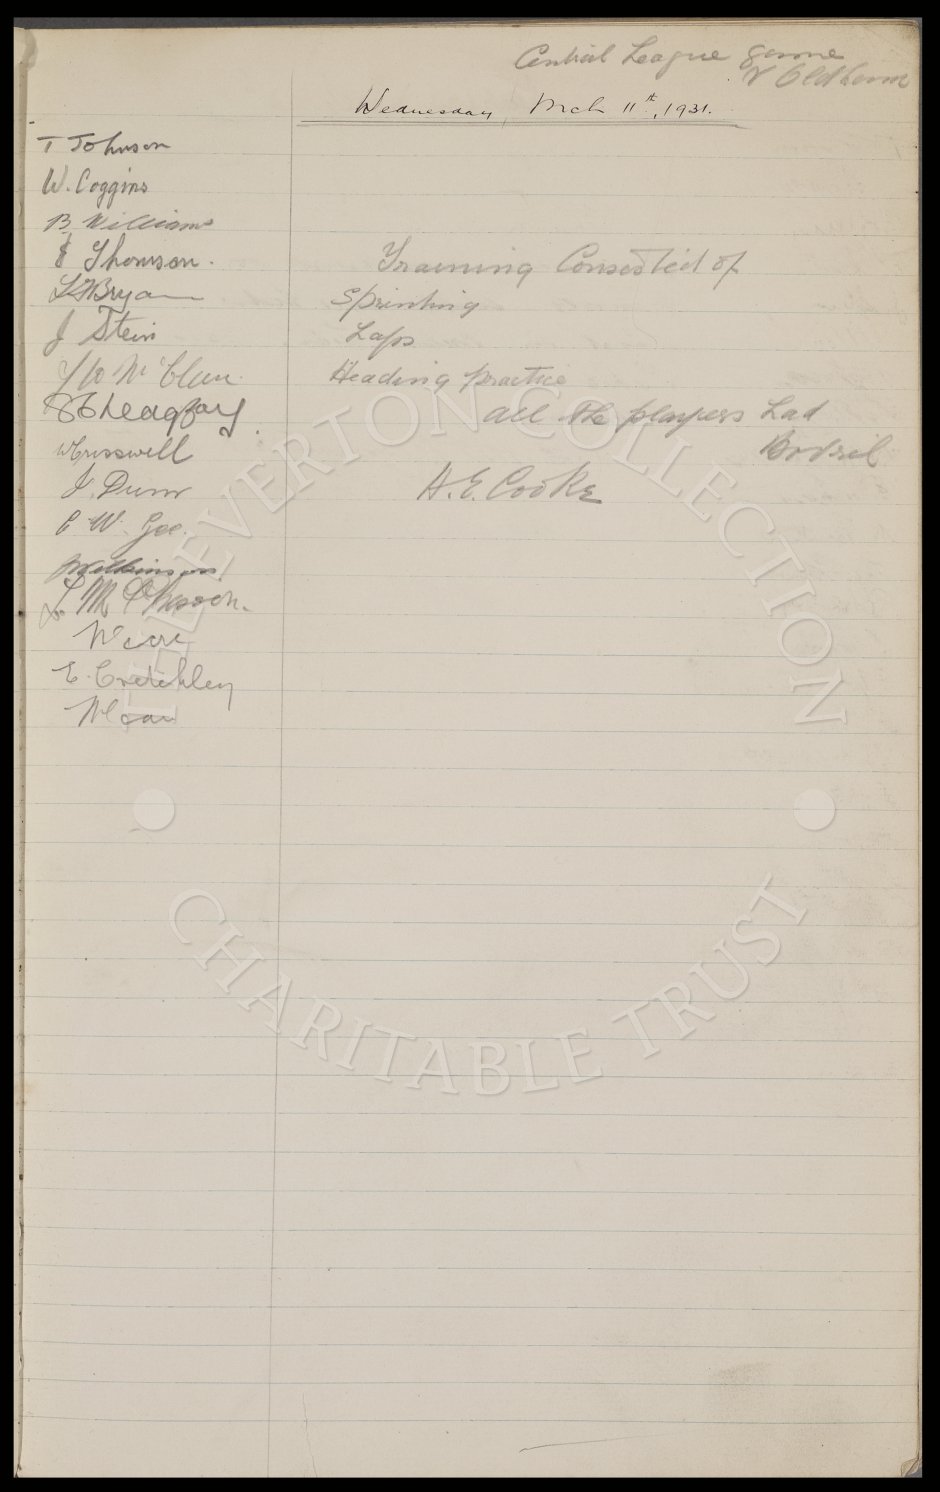 Central League game
V Oldham
Wednesday, Mch 11th, 1931.
T Johnson
W. Coggins
B Williams
Thomson.
Training Consisted of
Bryan
Sprinting
J Stein
Laps
McClure
Heading practice
All the players had
W Cresswell
Bovril
J. Dunn
H. E. Cooke
C W Gee.
Wilkinson
McPherson.
E. Critchley
THE EVERTON COLLECTION
CHARITABLE TRUST